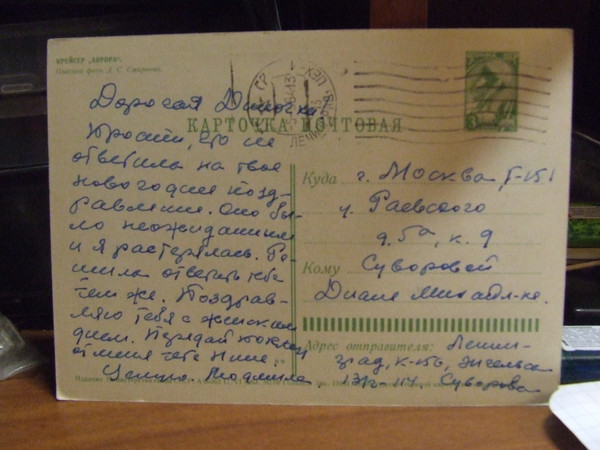 КРЕЙСЕР „АВРОРА“.
Дорогая Диночка
КАРТОЧКА ПОЧТОВАЯ
Прости, что не
ответила на твое
новогоднее позд-
равление. Оно бы-
ло неожиданным
и я растерялась. Ре-
шила ответить тебе
тем же. Поздрав-
ляю тебя с женским
днем. Передай поклон
от меня тете Нине.
Целую. Людмила
Куда г. Москва, Г-151
у. Раевского
д. 5а, к. 9
Кому Суворовой
Диане Михайл-не.
Адрес отправителя: Ленин-
град, К-156, Энгельса
Суворова